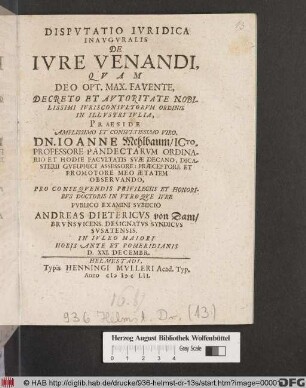 DISPVTATIO IVRIDICA
INAVGVRALIS
DE
IVRE VENANDI,
QVAM
DEO OPT. MAX. FAVENTE,
DECRETO ET AVTORITATE NOBI-
LISSIMI IVRISCONSVLTORVM ORDINIS
IN ILLUSTRI IVLIA,
PRÆSIDE
AMPLISSIMO ET CONSULTISSIMO VIRO,
DN. IOANNE Mehlbaum/ ICTO,
PROFESSORE PANDECTARVM ORDINA-
RIO ET HODIE FACULTATIS SUÆ DECANO, DICA-
STERII GVELPHICI ASSESSORE; PRÆCEPTORE ET
PROMOTORE MEO ÆTATEM
OBSERVANDO,
PRO CONSEQVENDIS PRIVILEGIIS ET HONORI-
BUS DOCTORIS IN VTROQVE IVRE
PVBLICO EXAMINI SVBIICIO
ANDREAS DIETERICVS von Dam/
BRVNSVICENS. DESIGNATVS SYNDICVS
SVSATENSIS.
IN IVLEO MAIORI
HORIS ANTE ET POMERIDIANIS
D. XXI. DECEMBR.
HELMESTADI,
Typis HENNINGI MVLLERI Acad. Typ.
Anno cIↄ Iↄc LII.
936 Helmst. Dr. (13)
Herzog August Bibliothek Wolfenbüttel
Grey Scale
© HAB http://diglib.hab.de/drucke/936-helmst-dr-13s/start.htm?image=00001